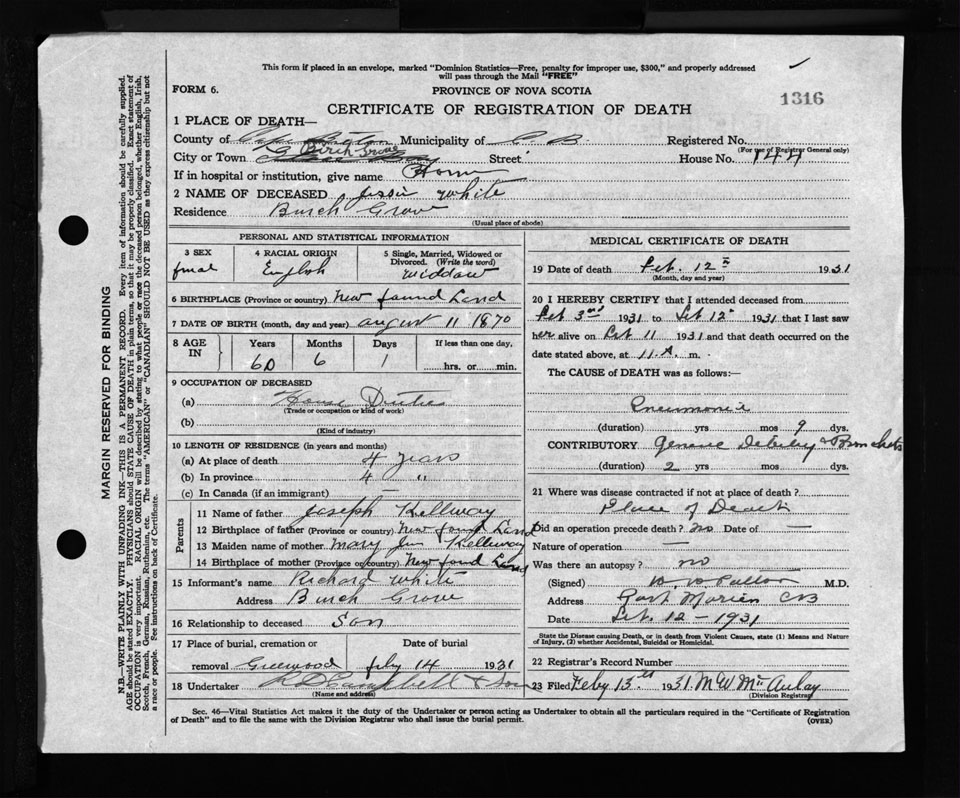 This form if placed in an envelope, marked "Dominion Statistics—Free, penalty for improper use, $300," and properly addressed
will pass through the Mail "FREE"
FORM 6.
PROVINCE OF NOVA SCOTIA
1316
CERTIFICATE OF REGISTRATION OF DEATH
1 PLACE OF DEATH—
County of Cape Breton Municipality of C. B Registered No.
(For use of Registrar General only)
City or Town Birch Grove Street House No. 144
If in hospital or institution, give name Home
2 NAME OF DECEASED Jessie White
Residence Burch Grove
(Usual place of abode)
PERSONAL AND STATISTICAL INFORMATION
3 SEX 4 RACIAL ORIGIN 5 Single, Married, Widowed or Divorced. (Write the word)
fmal English widdow
6 BIRTHPLACE (Province or country) New found Land
7 DATE OF BIRTH (month, day and year) august 11 1870
8 AGE IN Years Months Days If less than one day,
60 6 1 hrs. or min.
9 OCCUPATION OF DECEASED
(a) House Duties
(Trade or occupation or kind of work)
(b)
(Kind of industry)
10 LENGTH OF RESIDENCE (in years and months)
(a) At place of death 4 years
(b) In province 4 "
(c) In Canada (if an immigrant)
Parents
11 Name of father Joseph Kellway
12 Birthplace of father (Province or country) New found Land
13 Maiden name of mother Mary Jim Kelleway
14 Birthplace of mother (Province or country) New found Land
15 Informant's name Richard White
Address Burch Grove
16 Relationship to deceased Son
17 Place of burial, cremation or Date of burial
removal Greenwood feby 14 1931
18 Undertaker Campbell & Son
(Name and address)
MEDICAL CERTIFICATE OF DEATH
19 Date of death Feb. 12th 1931
(Month, day and year)
20 I HEREBY CERTIFY that I attended deceased from
Feb 3rd 1931 to Feb 12 1931 that I last saw
her alive on Feb 11 1931 and that death occurred on the
date stated above, at 11 A. m.
The CAUSE of DEATH was as follows:—
Pneumonia
(duration) yrs mos 9 dys.
CONTRIBUTORY General Debility & Bronchitis
(duration) 2 yrs mos dys.
21 Where was disease contracted if not at place of death?
Place of Death
Did an operation precede death? no Date of —
Nature of operation —
Was there an autopsy? no
(Signed) Patton M.D.
Address Port Morien CB
Date Feb. 12 — 1931
State the Disease causing Death, or in death from Violent Causes, state (1) Means and Nature
of Injury, (2) whether Accidental, Suicidal or Homicidal.
22 Registrar's Record Number
23 Filed Feby 13th 1931. M W McAulay
(Division Registrar)
Sec. 46—Vital Statistics Act makes it the duty of the Undertaker or person acting as Undertaker to obtain all the particulars required in the "Certificate of Registration
of Death" and to file the same with the Division Registrar who shall issue the burial permit.
(OVER)
MARGIN RESERVED FOR BINDING
N.B.—WRITE PLAINLY WITH UNFADING INK—THIS IS A PERMANENT RECORD. Every item of information should be carefully supplied.
AGE should be stated EXACTLY. PHYSICIANS should STATE CAUSE OF DEATH in plain terms, so that it may be properly classified. Exact statement of
OCCUPATION is very important. RACIAL ORIGIN will be described by stating to what people or race the deceased person belonged, whether English, Irish,
Scotch, French, German, Russian, Ruthenian, etc. The terms "AMERICAN" or "CANADIAN" SHOULD NOT BE USED as they express citizenship but not
a race or people. See instructions on back of Certificate.